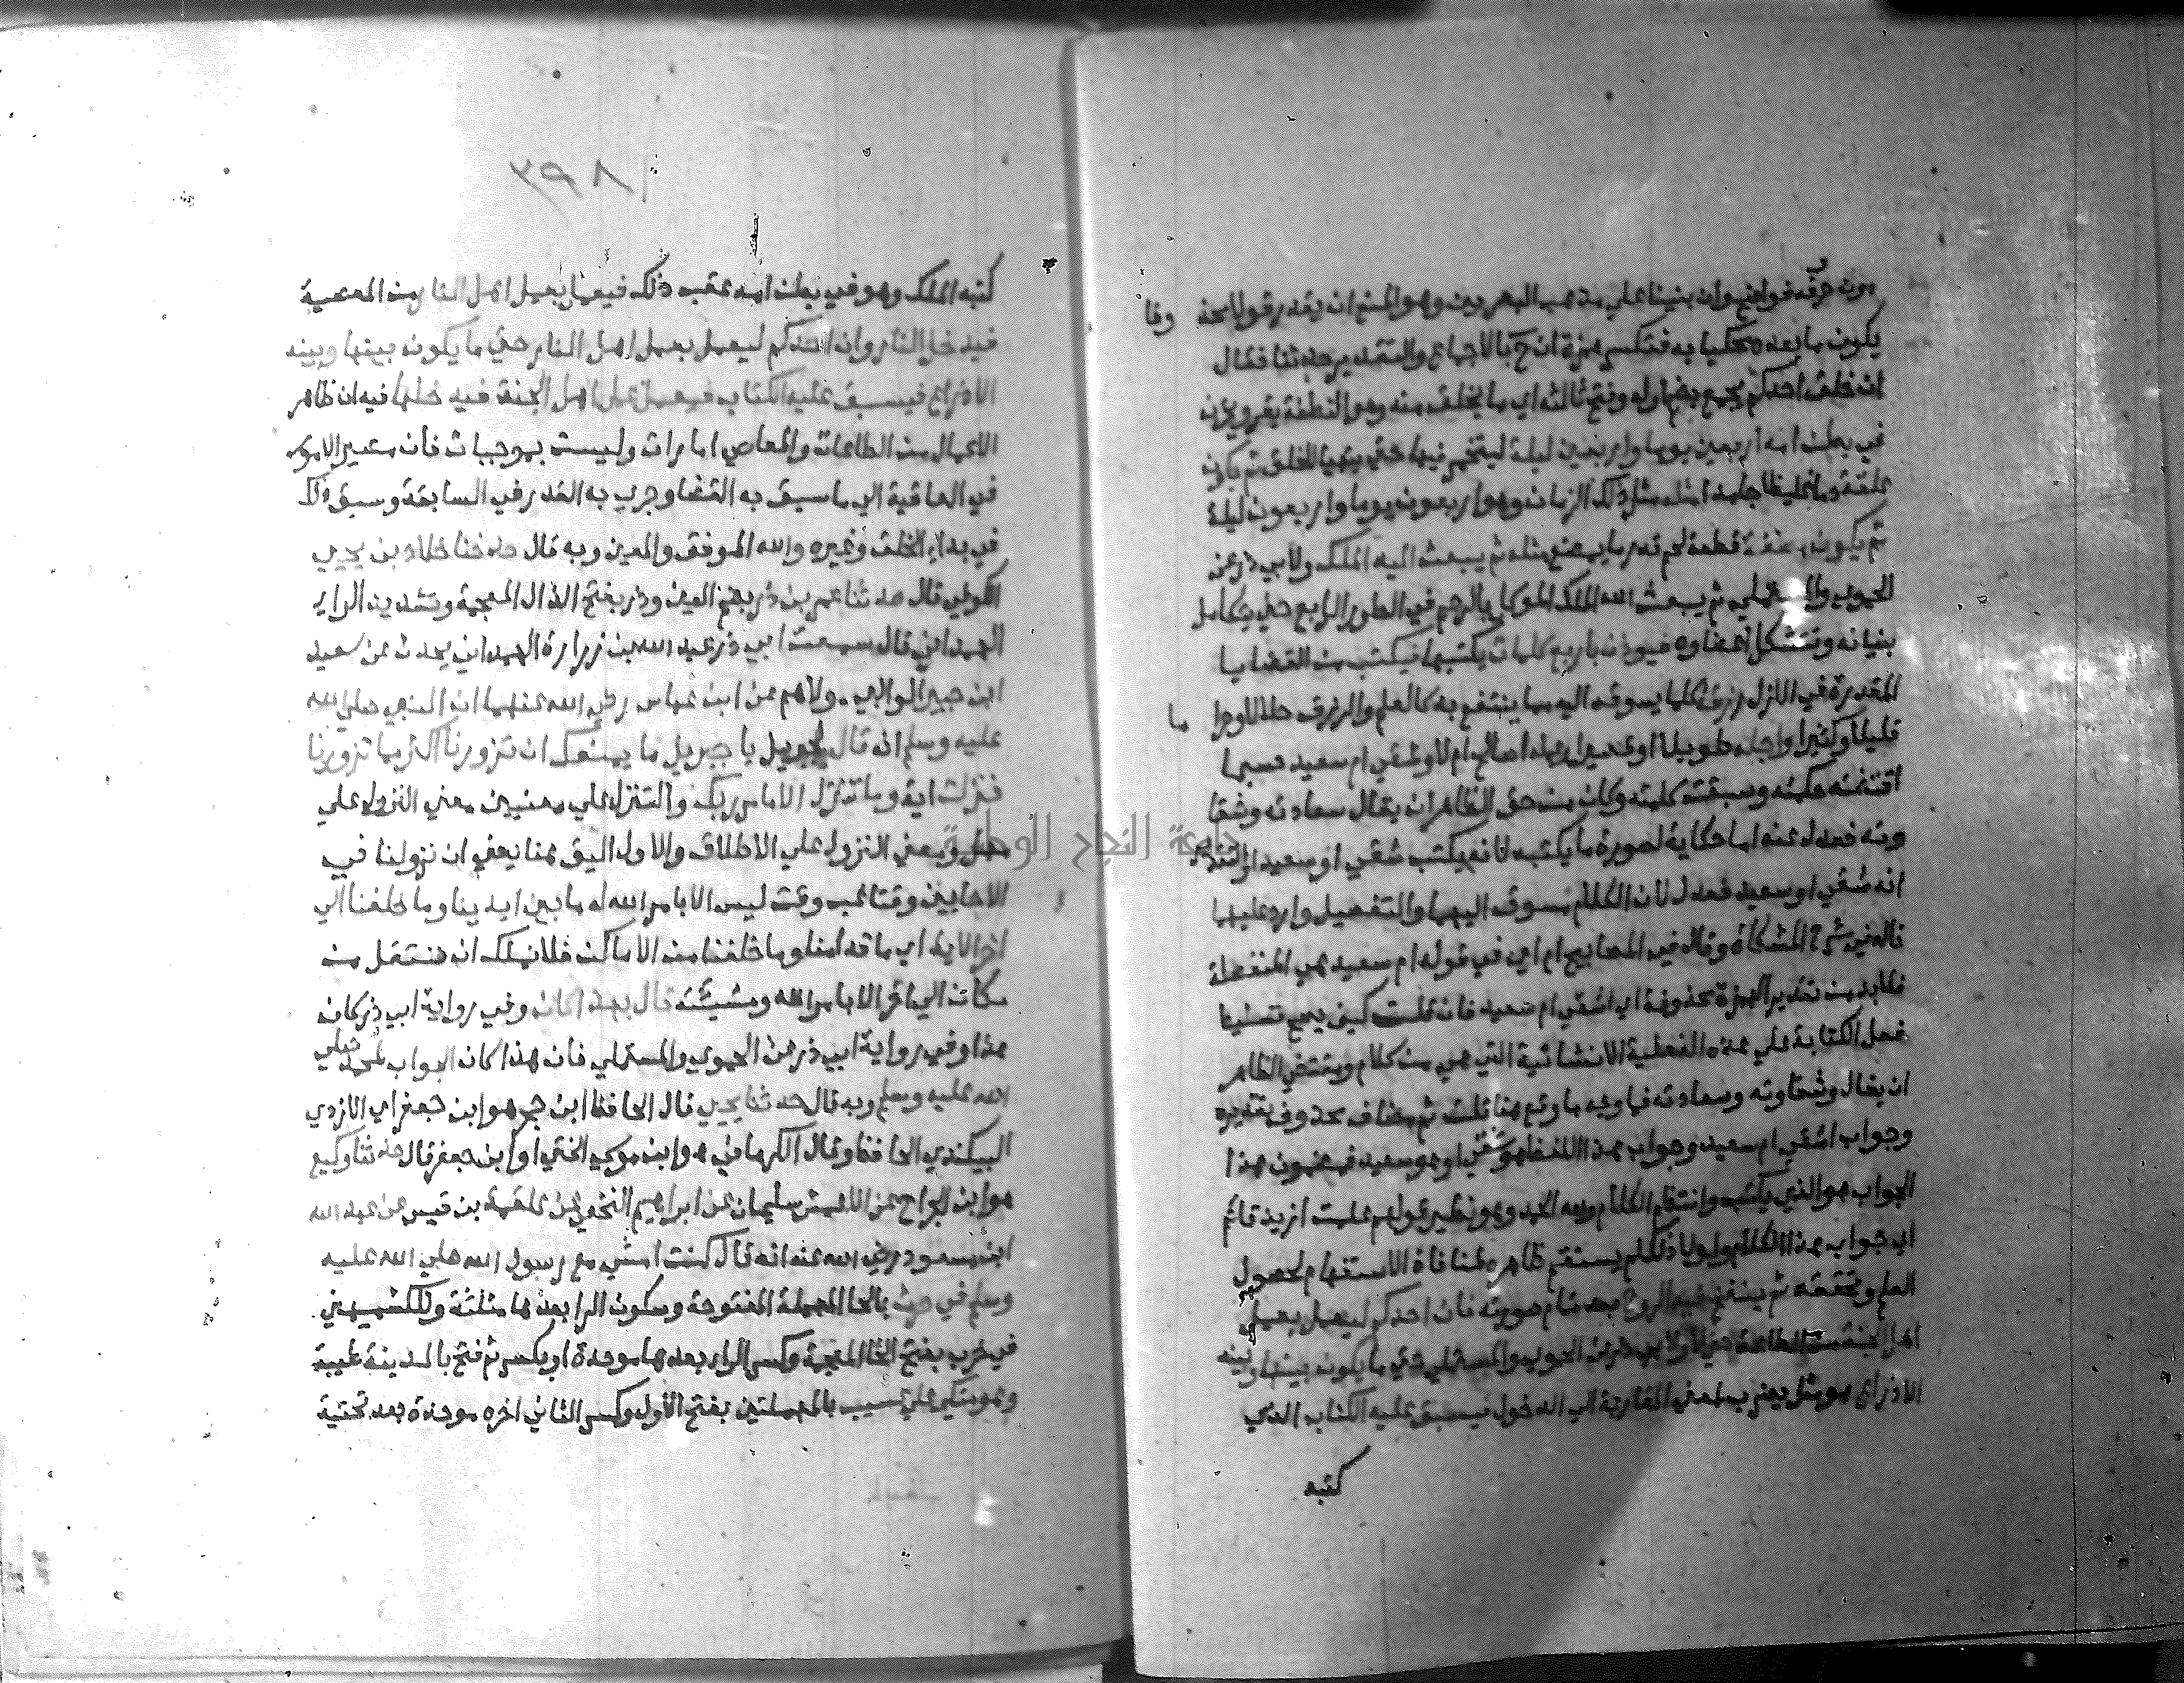 دون حرفه فواضح وان بنينا على مذهب البصريين وهو المنع ان يقدر قولا محذ
وفا
يكون ما بعده محكيا به فتكسر همزة ان ح بالاجماع والتقدير حدثنا فقال
ان خلق احدكم يجمع بضم اوله وفتح ثالثه اي ما يخلق منه وهو النطفة يقر ويخزن
في بطن امه اربعين يوما واربعين ليلة ليتخمر فيها حتى يتهيا للخلق ثم يكون
علقة دما غليظا جامدا مثله مثل ذلك الزمان وهو اربعون يوما واربعون ليلة
ثم يكون مضغة قطعة لحم قدر ما يمضغ مثله ثم يبعث اليه الملك ولابي ذر عن
الحموي والمستملي ثم يبعث الله الملك الموكل بالرحم في الطور الرابع حتى يتكامل
بنيانه وتتشكل اعضاوه فيوذن باربع كلمات يكتبها فيكتب من القضايا
المقدرة في الازل رزقه كلما يسوقه اليه مما ينتفع به كالعلم والرزق حلالا وحرا
ما
قليلا وكثيرا واجله طويلا او قصيرا وعمله اصالح ام لا وشقي ام سعيد حسبما
اقتضته حكمته وسبقت كلمته وكان من حق الظاهر ان يقال سعادته وشقا
وته فعدل عنه اما حكاية لصورة ما يكتبه لانه يكتب شقي او سعيد او التقدير
انه شقي او سعيد فعدل لان الكلام مسوق اليهما والتفصيل وارد عليهما
قاله في شرح المشكاة وقال في المصابيح ام اي في قوله ام سعيد هي المتصلة
فلابد من تقدير الهمزة محذوفة اي اشقي ام سعيد فان قلت كيف يصح تسليط
فعل الكتابة على هذه الفعلية الانشائية التي هي من كلام ويقتضي الظاهر
ان يقال وشقاوته وسعادته فما وجه ما وقع هنا قلت ثم مضاف محذوف تقديره
وجواب اشقي ام سعيد وجواب هذا اللفظ هو شقي او هو سعيد فمضمون هذا
الجواب هو الذي يكتب وانتظم الكلام ولله الحمد وهو نظير قولهم علمت ازيد قائم
اي جواب هذا الكلام ولولا ذلك لم يستقم ظاهره لمنافاة الاستفهام لحصول
العلم وتحققه ثم ينفخ فيه الروح بعد تمام صورته فان احدكم ليعمل بعمل
اهل الجنة من الطاعة حتى لا ولابي ذر عن الحموي والمستملي حتى ما يكون بينها وبينه
الا ذراع هو مثل يضرب لمعنى المقاربة الى الدخول فيسبق عليه الكتاب الذي
كتبه
٣٩٨
كتبه الملك وهو في بطن امه عقب ذلك فيعمل بعمل اهل النار من المعصية
فيدخل النار وان احدكم ليعمل بعمل اهل النار حتى ما يكون بينها وبينه
الا ذراع فيسبق عليه الكتاب فيعمل عمل اهل الجنة فيدخلها فيه ان ظاهر
الاعمال من الطاعات والمعاصي امارات وليست بموجبات فان مصير الامور
في العاقبة الى ما سبق به القضا وجرى به القدر في السابقة وسبق ذلك
في بداء الخلق وغيره والله الموفق والمعين وبه قال حدثنا خلاد بن يحيى
الكوفي قال حدثنا عمر بن ذر بضم العين وذر بفتح الذال المعجمة وتشديد الراء
الهمداني قال سمعت ابي ذر عبد الله بن زرارة الهمداني يحدث عن سعيد
ابن جبير الوالبي ولاهم عن ابن عباس رضي الله عنهما ان النبي صلى الله
عليه وسلم انه قال لجبريل يا جبريل ما يمنعك ان تزورنا اكثر مما تزورنا
فنزلت اية وما نتنزل الا بامر ربك والتنزل على معنيين معنى النزول على
مهل ومعنى النزول على الاطلاق والاول اليق هنا يعني ان نزولنا في
الاحايين وقتا غب وقت ليس الا بامر الله له ما بين ايدينا وما خلفنا الى
اخر الاية اي ما قدامنا وما خلفنا من الاماكن فلا نملك ان ننتقل من
مكان الى اخر الا بامر الله ومشيئته قال هذا كان وفي رواية ابي ذر كان
هذا وفي رواية ابي ذر عن الحموي والمستملي فان هذا كان الجواب لمحمد صلى
الله عليه وسلم وبه قال حدثنا يحيى قال الحافظ ابن حجر هو ابن جعفر اي الازدي
البيكندي الحافظ وقال الكرماني هو ابن موسى الختي او ابن جعفر قال حدثنا وكيع
هو ابن الجراح عن الاعمش سليمان عن ابراهيم النخعي عن علقمة بن قيس عن عبد الله
ابن مسعود رضي الله عنه انه قال كنت امشي مع رسول الله صلى الله عليه
وسلم في حرث بالحا المهملة المفتوحة وسكون الرا بعدها مثلثة وللكشميهني
في خرب بفتح الخا المعجمة وكسر الراء بعدها موحدة او بكسر ثم فتح بالمدينة طيبة
وهو متكي على عسيب بالمهملتين بفتح الاول وكسر الثاني اخره موحدة بعد تحتية
جامعة النجاح الوطنية